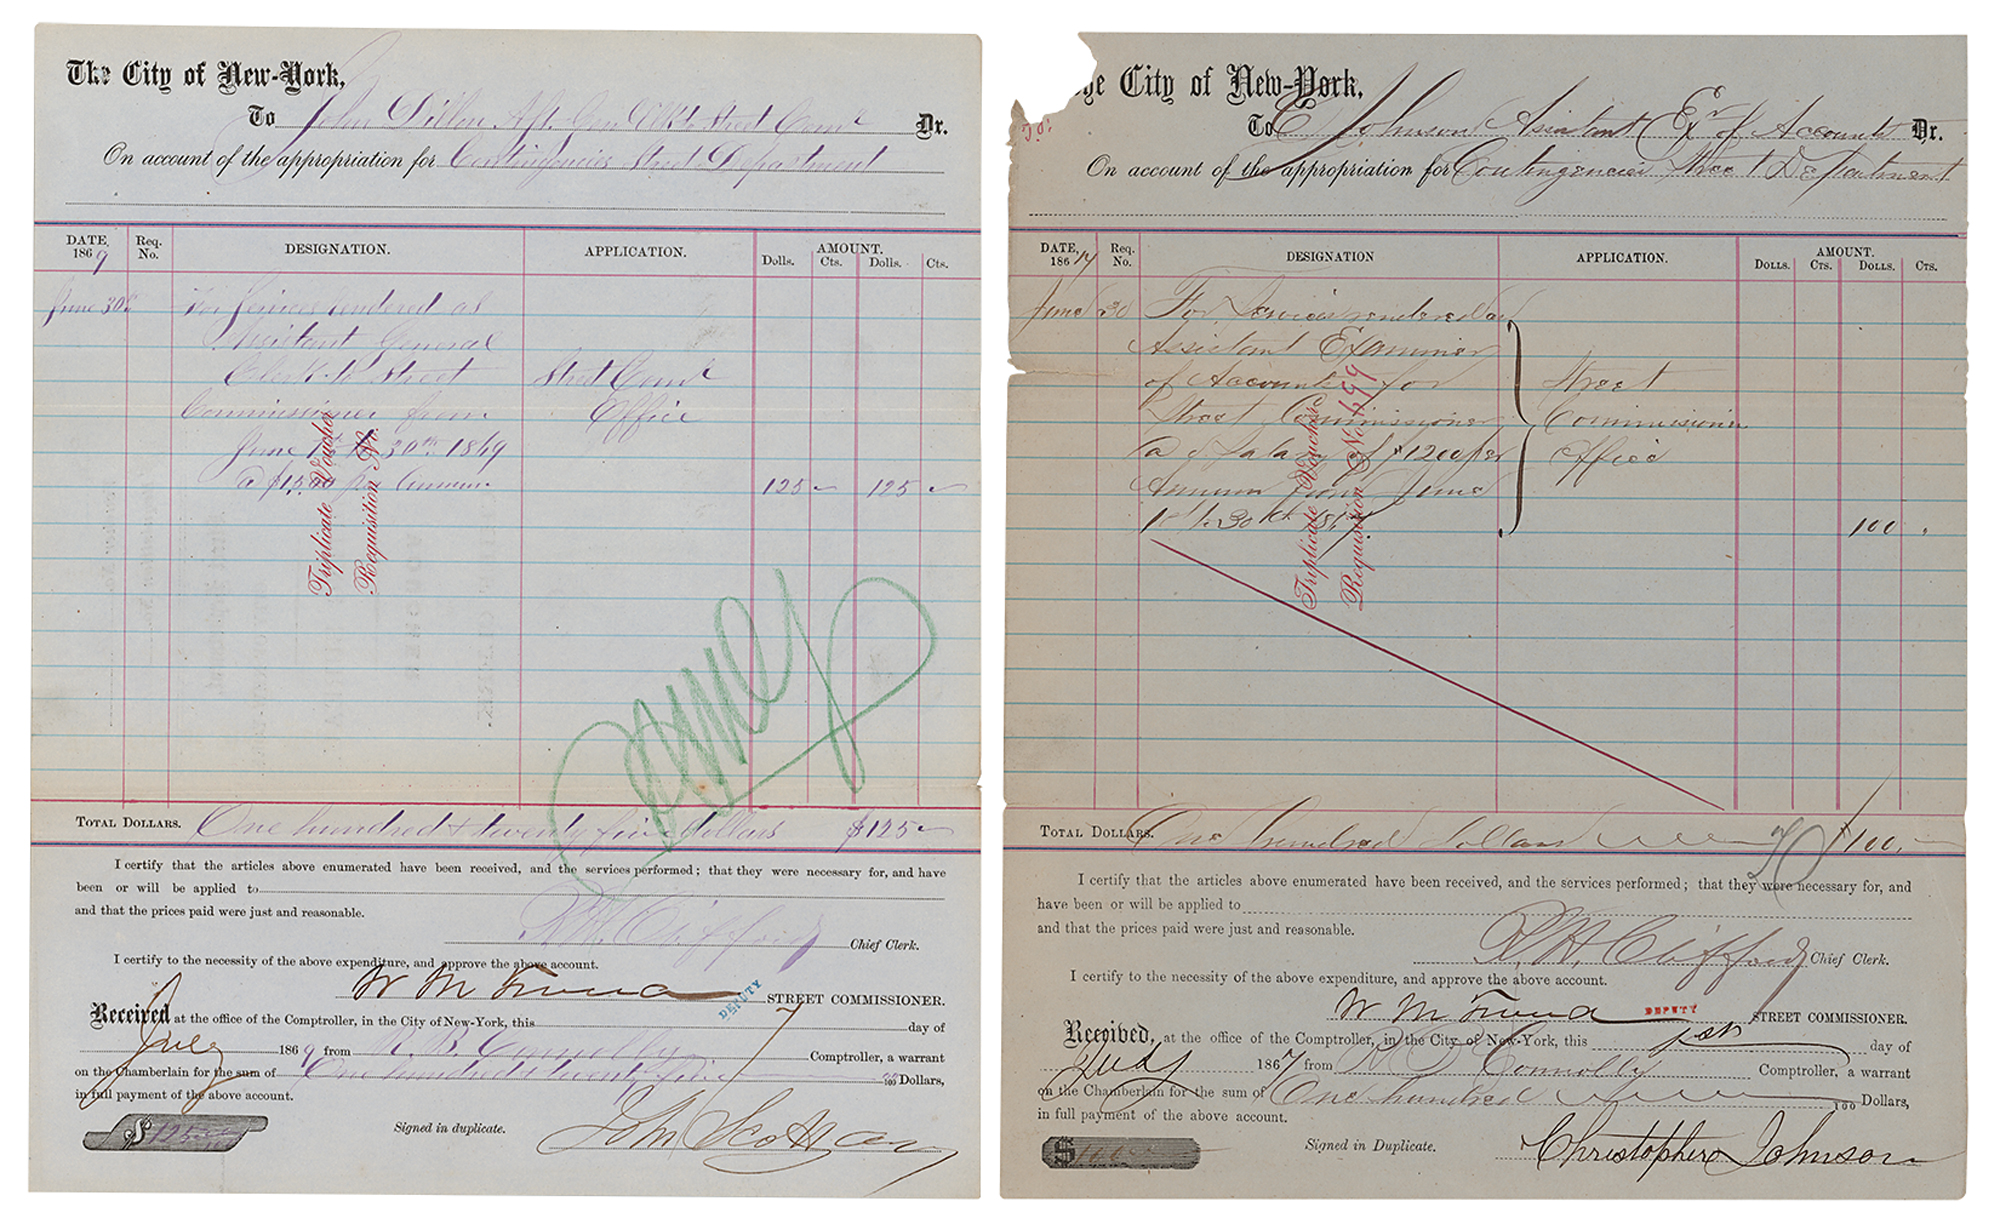 The City of New-York,
To John Dillon Asst. Gen Clk to Street Comr Dr.
On account of the appropriation for Contingencies Street Department
DATE, 1869 Req. No. DESIGNATION. APPLICATION. AMOUNT.
Dolls. Cts. Dolls. Cts.
June 30th For Services rendered as
Assistant General
Clerk to Street Street Comr
Commissioner from Office
June 1st to 30th 1869
a $1500 per Annum 125 125
Triplicate Voucher
Requisition No.
TOTAL DOLLARS. One hundred & twenty five dollars $125
I certify that the articles above enumerated have been received, and the services performed; that they were necessary for, and have
been or will be applied to
and that the prices paid were just and reasonable.
R. M. Clifford Chief Clerk.
I certify to the necessity of the above expenditure, and approve the above account.
W M Tweed DEPUTY STREET COMMISSIONER.
Received at the office of the Comptroller, in the City of New-York, this 7 day of
July 1869 from R. B. Connolly Comptroller, a warrant
on the Chamberlain for the sum of One hundred & twenty five 100 Dollars,
in full payment of the above account.
$ 125 Signed in duplicate. John
The City of New-York,
To C Johnson Assistant Exr of Accounts Dr.
On account of the appropriation for Contingencies Street Department
DATE, 1867 Req. No. DESIGNATION APPLICATION. AMOUNT.
DOLLS. CTS. DOLLS. CTS.
June 30 For Services rendered as
Assistant Examiner
of Accounts for Street
Street Commissioner Commissioner
a Salary of $1200 per Office
Annum from June
1st to 30th 1867 100
Triplicate Voucher
Requisition No. 499
TOTAL DOLLARS. One hundred dollars $100.
I certify that the articles above enumerated have been received, and the services performed; that they were necessary for, and
have been or will be applied to
and that the prices paid were just and reasonable.
R. M. Clifford Chief Clerk.
I certify to the necessity of the above expenditure, and approve the above account.
W M Tweed DEPUTY STREET COMMISSIONER.
Received, at the office of the Comptroller, in the City of New-York, this 1st day of
July 1867 from R B Connolly Comptroller, a warrant
on the Chamberlain for the sum of One hundred 100 Dollars,
in full payment of the above account.
$ 100 Signed in Duplicate. Christopher Johnson